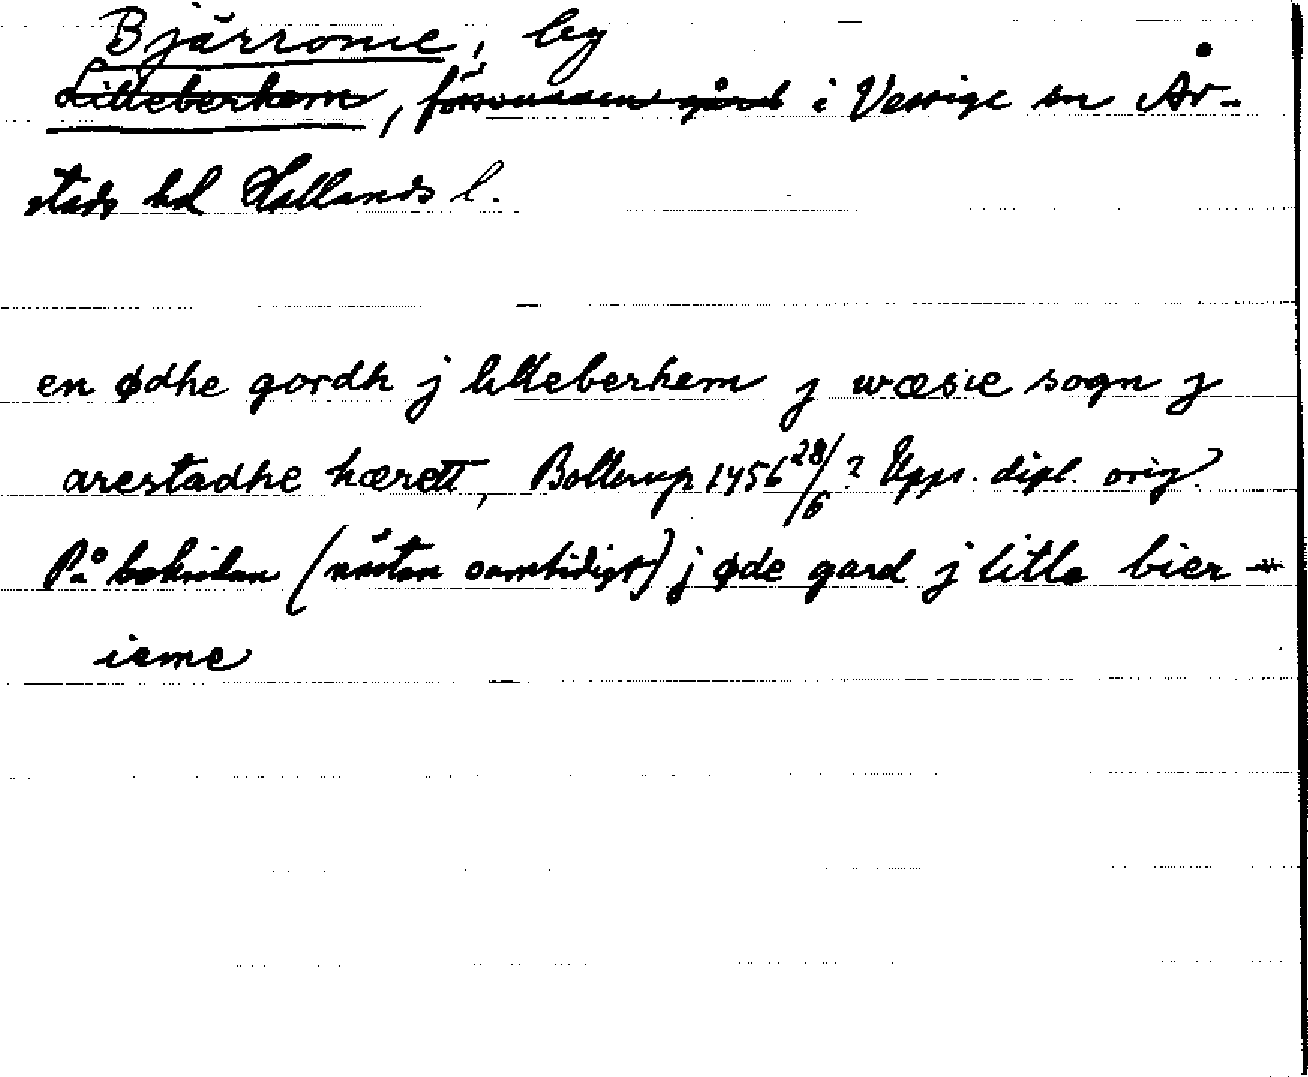 Bjärrome, by
Lilleberhem, försvunnen gård i Vessige sn År-
stads hd Hallands l.
en ødhe gordh j lilleberhem j wæsie sogn j
arestadhe hærett, Bollerup 1456 28/6? Upps. dipl. orig.
På baksidan (nästan samtidigt) j øde gard j litle bier-
ieme